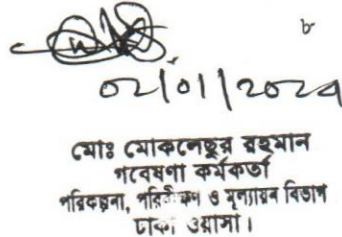 ৮
০২/০১/২০২৭
মোঃ মোকলেছুর রহমান
গবেষণা কর্মকর্তা
পরিকল্পনা, পরিবীক্ষণ ও মূল্যায়ন বিভাগ
ঢাকা ওয়াসা।